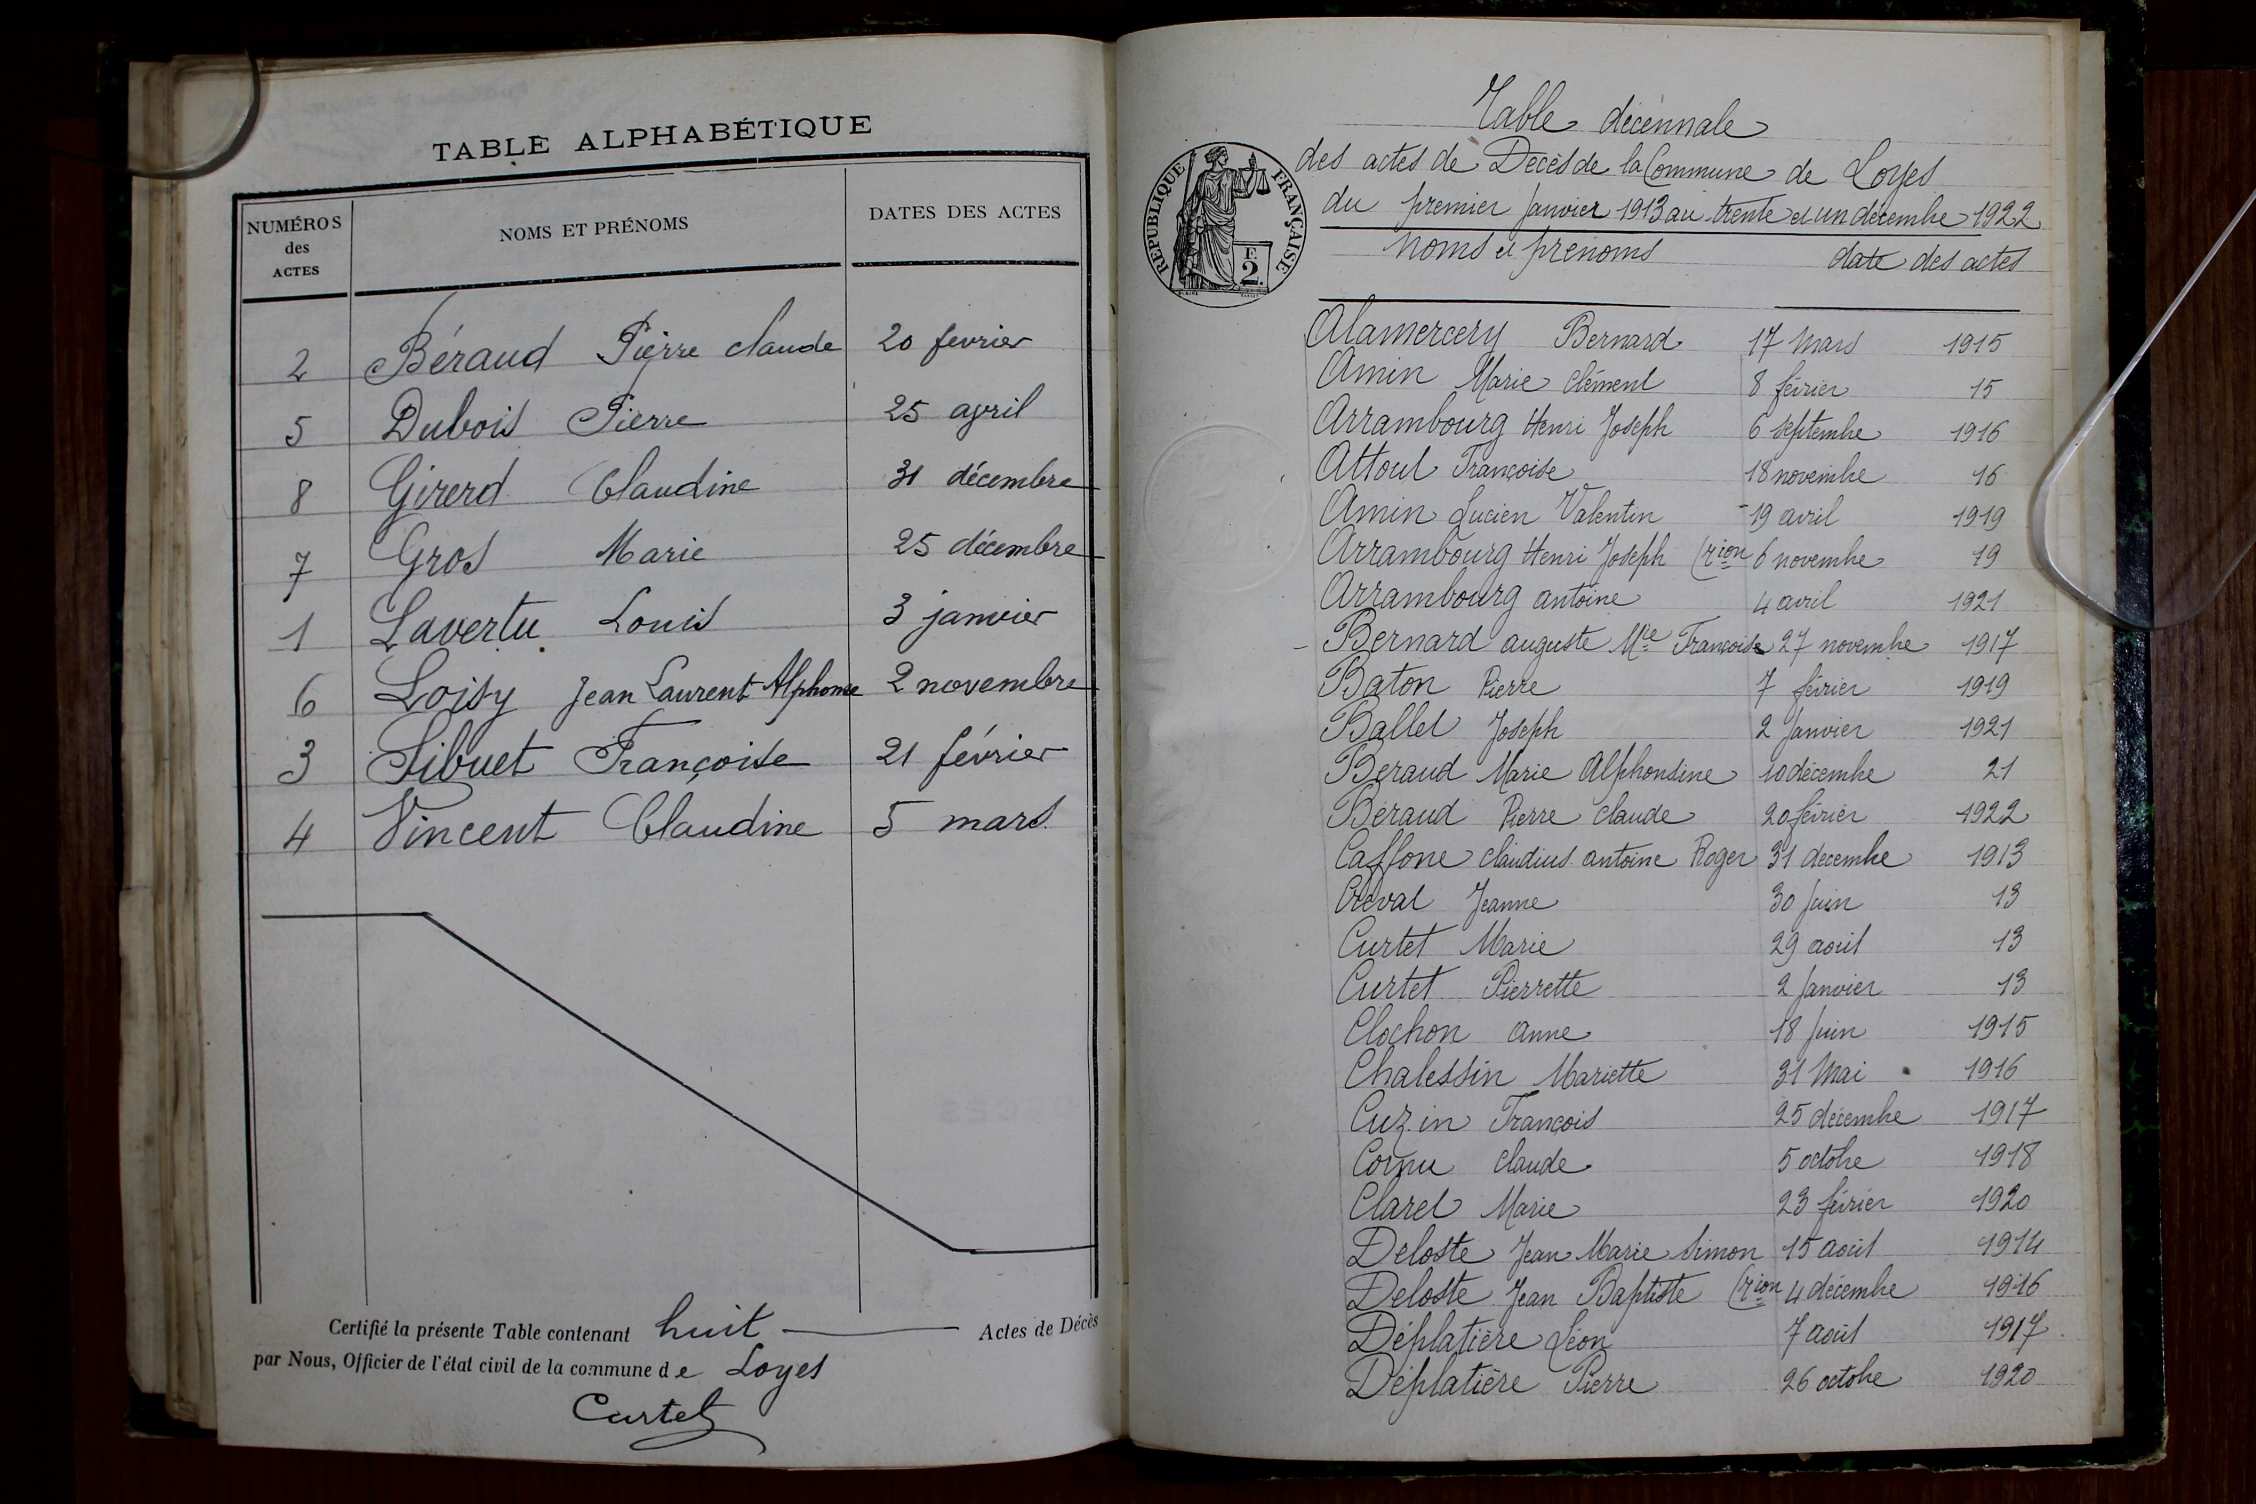 TABLE ALPHABÉTIQUE
NUMÉROS des ACTES NOMS ET PRÉNOMS DATES DES ACTES
2 Béraud Pierre claude 20 fevrier
5 Dubois Pierre 25 avril
8 Girerd Claudine 31 décembre
7 Gros Marie 25 décembre
1 Lavertu Louis 3 janvier
6 Loisy Jean Laurent Alphonse 2 novembre
3 Sibuet Françoise 21 février
4 Vincent Claudine 5 mars
Certifié la présente Table contenant huit Actes de Décès
par Nous, Officier de l'état civil de la commune de Loyes
Curtet
Table décennale
des actes de Decès de la Commune de Loyes
du premier Janvier 1913 au trente et un décembre 1922
RÉPUBLIQUE FRANÇAISE
F. 2.
noms et prenoms date des actes
Alamercery Bernard 17 Mars 1915
Amin Marie Clément 8 février 15
Arrambourg Henri Joseph 6 septembre 1916
Attout Françoise 18 novembre 16
Amin Lucien Valentin 19 avril 1919
Arrambourg Henri Joseph (rion 6 novembre 19
Arrambourg antoine 4 avril 1921
Bernard auguste Mie Françoise 27 novembre 1917
Baton Pierre 7 février 1919
Ballet Joseph 2 Janvier 1921
Beraud Marie Alphonsine 10 décembre 21
Béraud Pierre Claude 20 février 1922
Caffone Claudius antoine Roger 31 decembre 1913
Creval Jeanne 30 Juin 13
Curtet Marie 29 aout 13
Curtet Pierrette 2 Janvier 13
Clochon Anne 18 Juin 1915
Chalessin Mariette 31 Mai 1916
Cuzin François 25 décembre 1917
Cornu Claude 5 octobre 1918
Claret Marie 23 février 1920
Deloste Jean Marie Simon 15 août 1914
Deloste Jean Baptiste (rion 4 décembre 1916
Déplatière Léon 7 aout 1917
Déplatière Pierre 26 octobre 1920